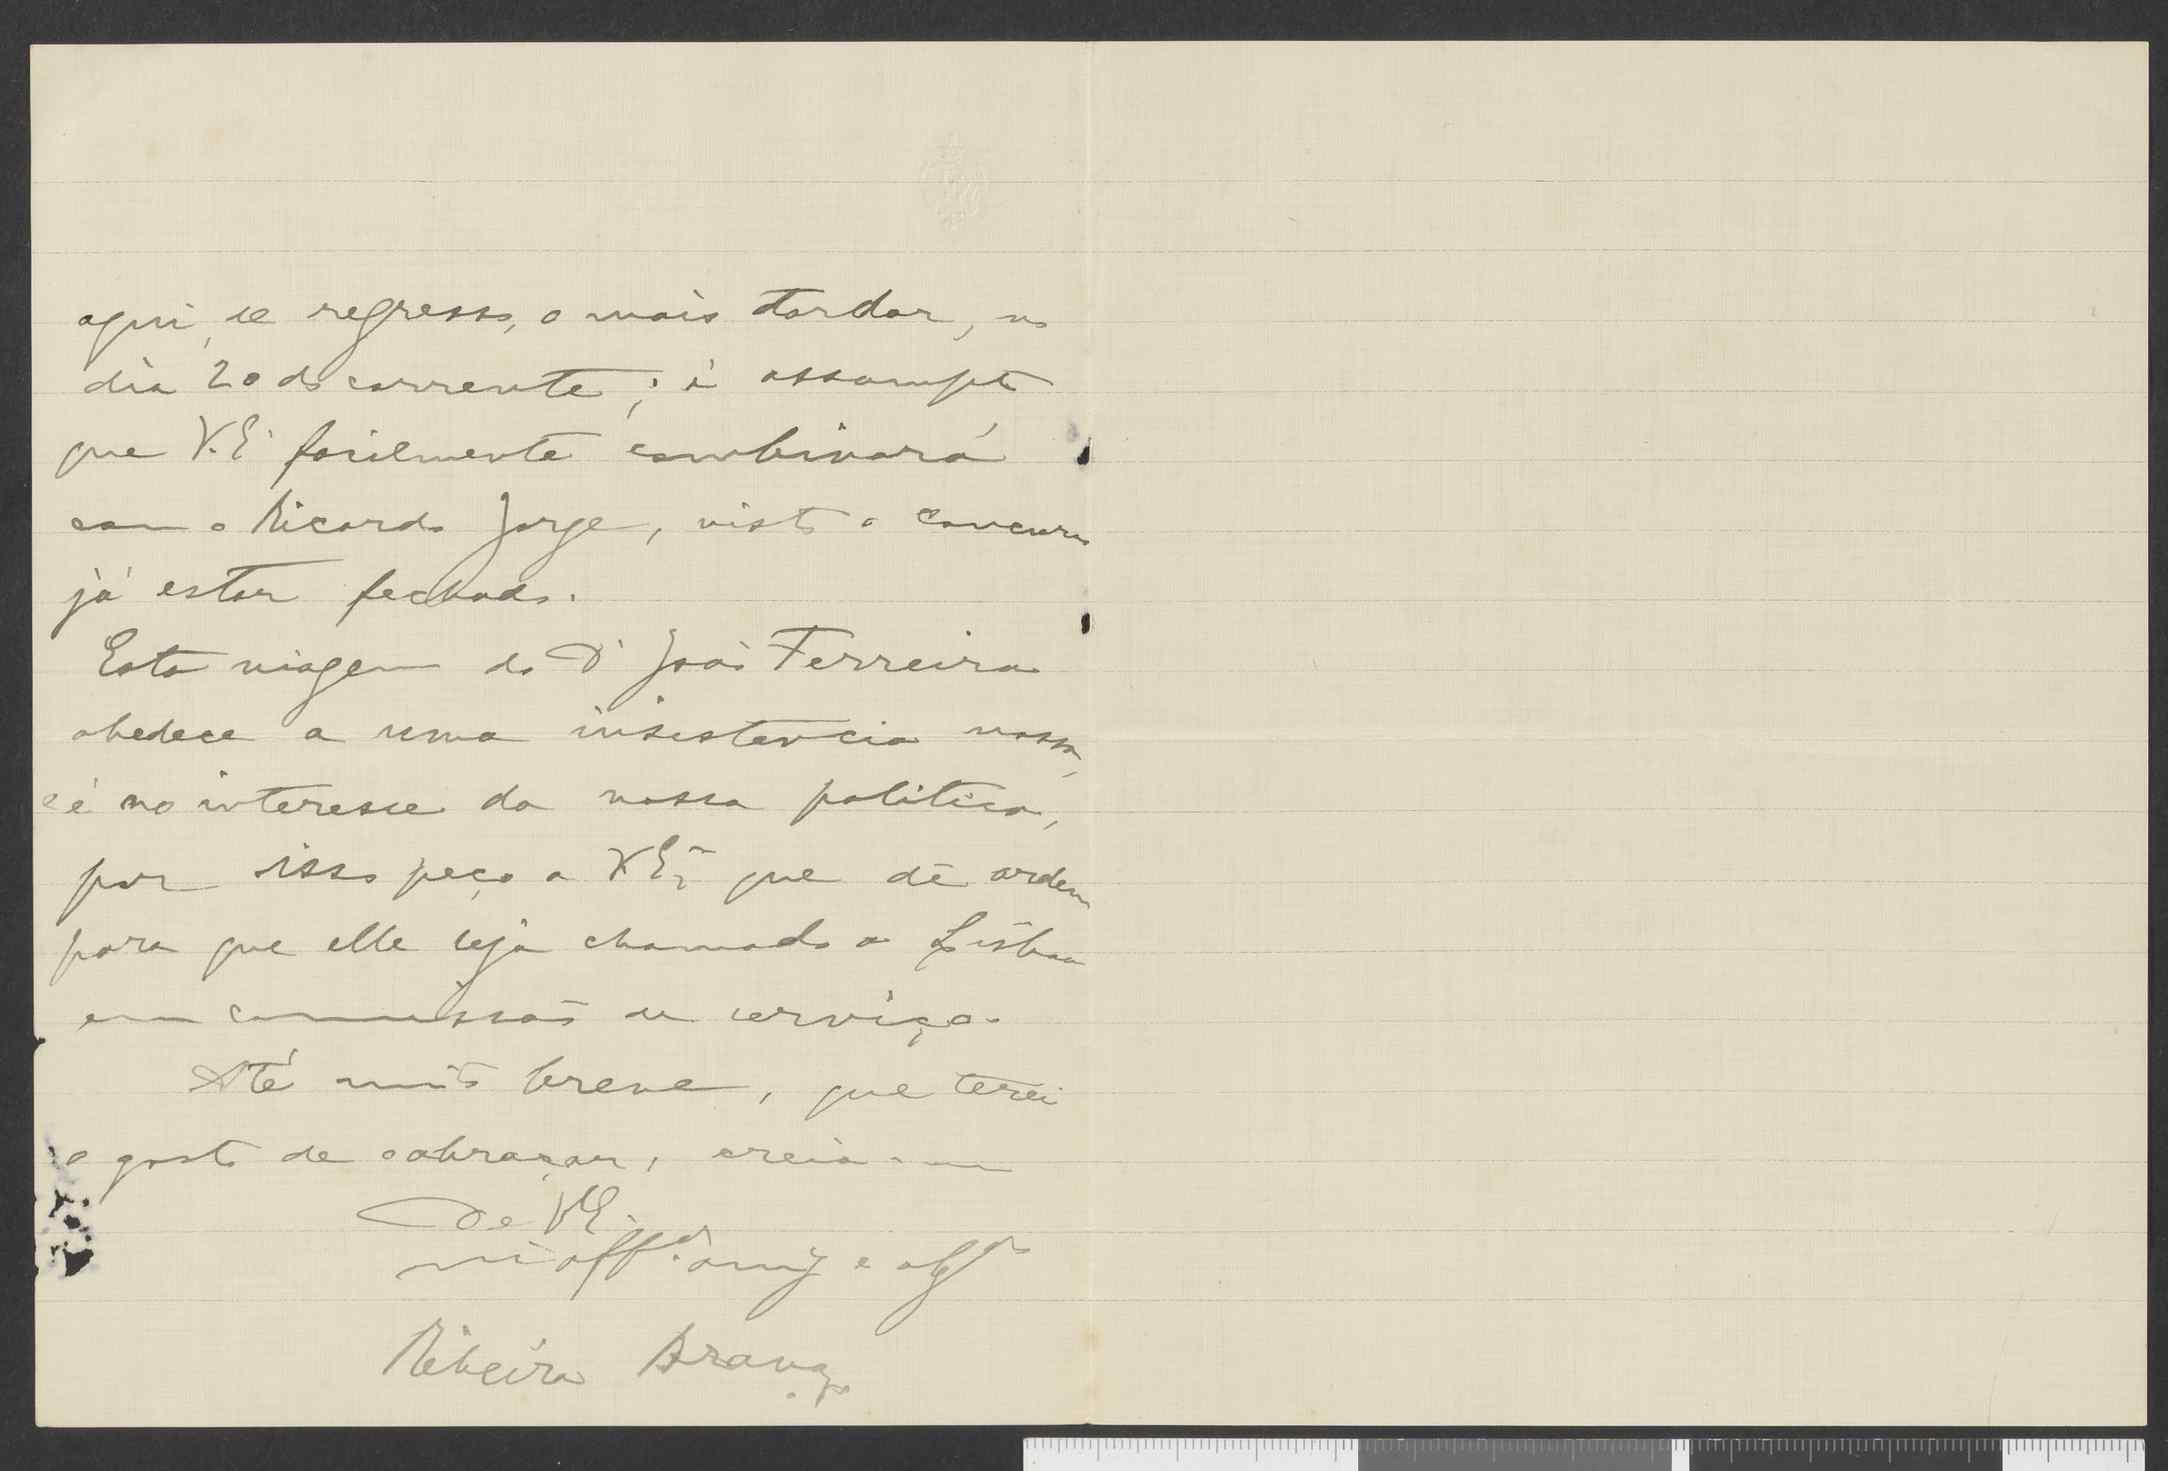 aqui, se regresso, o mais tardar, no
dia 20 do corrente; é assumpto
que V. Eª facilmente combinará
com o Ricardo Jorge, visto o concurso
já estar fechado.
Esta viagem do Dr João Ferreira
obedece a uma insistencia nossa,
e é no interesse da nossa politica,
por isso peço a V. Eª que dê ordem
para que elle seja chamado a Lisboa
em commissão de serviço.
Até muito breve, que terei
o gosto de o abraçar, creia-me
De V. E.
mto affdo amigo e obgdo
Ribeira Brava